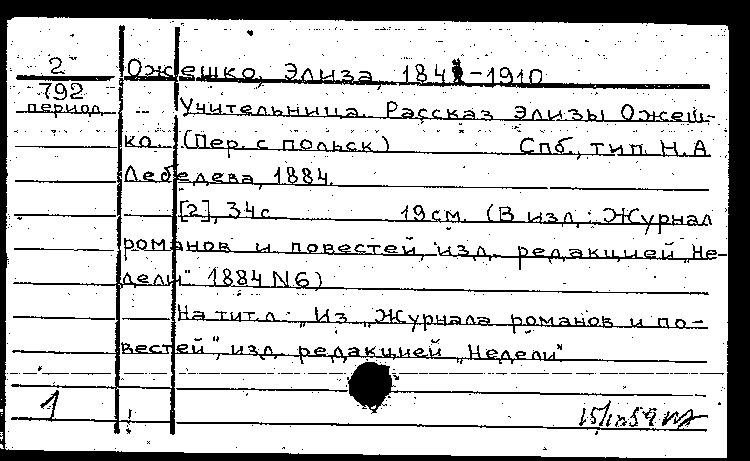 2
Ожешко, Элиза, 184 -1910
792
период
Учительница. Рассказ Элизы Ожеш-
ко. (Пер. с польск) Спб., тип. Н.А.
Лебедева, 1884.
[2], 34с. 19см. (В изд.: Журнал
романов и повестей, изд. редакцией „Не-
дели" 1884 N6)
На тит.л.: „Из „Журнала романов и по-
вестей", изд. редакцией „Недели".
1